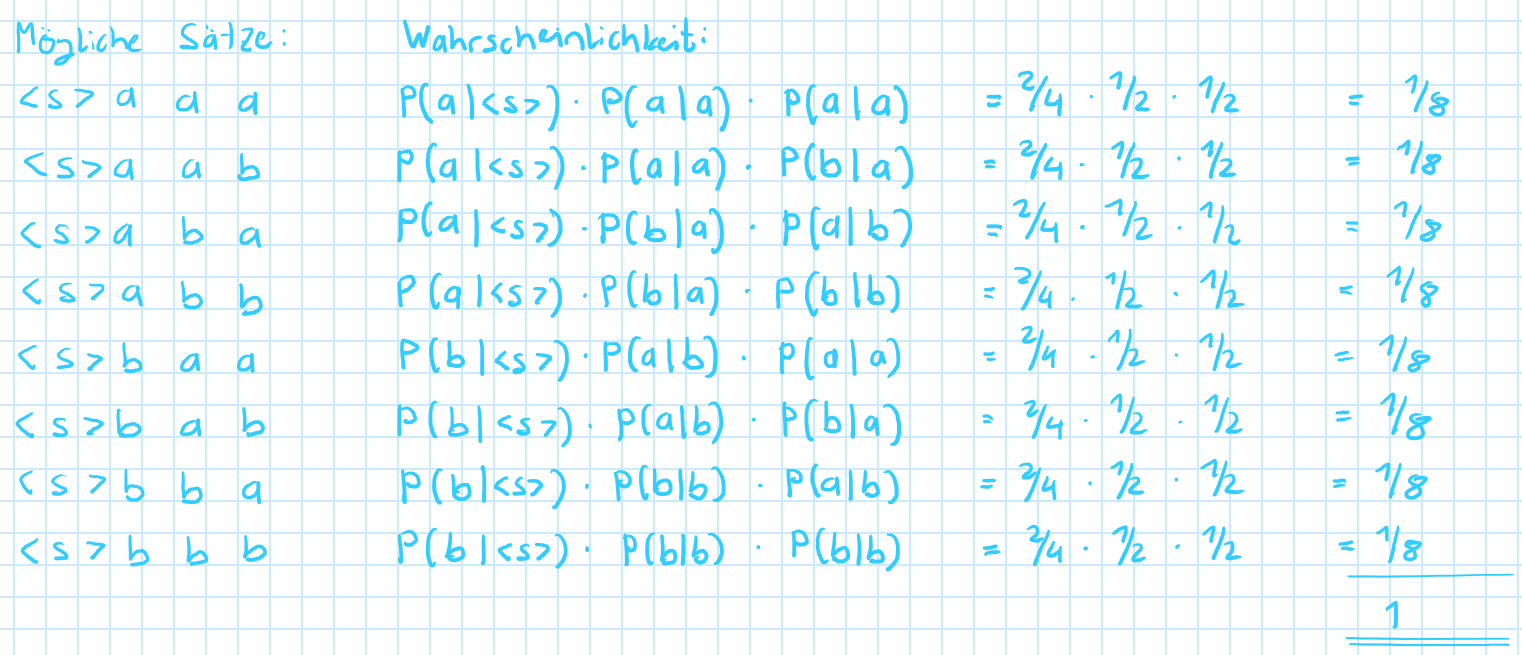 Mögliche Sätze: Wahrscheinlichkeit:
<s> a a a P(a|<s>) · P(a|a) · P(a|a) = 2/4 · 1/2 · 1/2 = 1/8
<s> a a b P(a|<s>) · P(a|a) · P(b|a) = 2/4 · 1/2 · 1/2 = 1/8
<s> a b a P(a|<s>) · P(b|a) · P(a|b) = 2/4 · 1/2 · 1/2 = 1/8
<s> a b b P(a|<s>) · P(b|a) · P(b|b) = 2/4 · 1/2 · 1/2 = 1/8
<s> b a a P(b|<s>) · P(a|b) · P(a|a) = 2/4 · 1/2 · 1/2 = 1/8
<s> b a b P(b|<s>) · P(a|b) · P(b|a) = 2/4 · 1/2 · 1/2 = 1/8
<s> b b a P(b|<s>) · P(b|b) · P(a|b) = 2/4 · 1/2 · 1/2 = 1/8
<s> b b b P(b|<s>) · P(b|b) · P(b|b) = 2/4 · 1/2 · 1/2 = 1/8
1